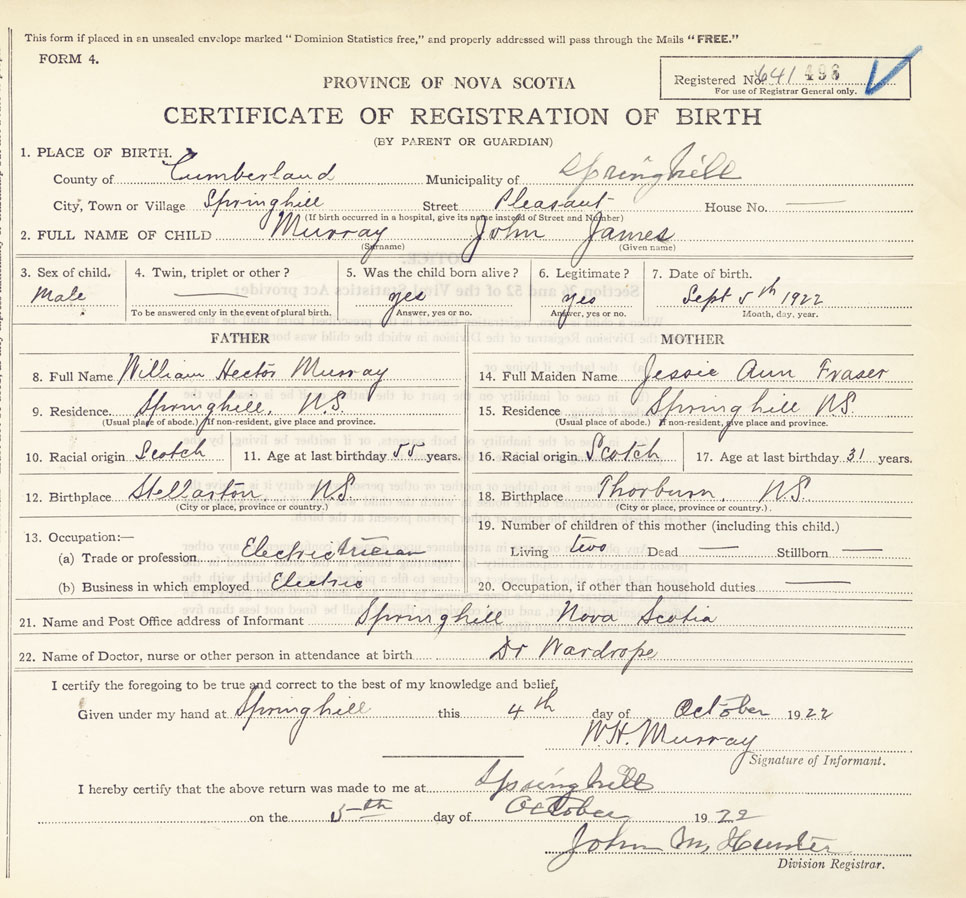 This form if placed in an unsealed envelope marked "Dominion Statistics free," and properly addressed will pass through the Mails "FREE."
FORM 4.
Registered No. 641 498
For use of Registrar General only.
PROVINCE OF NOVA SCOTIA
CERTIFICATE OF REGISTRATION OF BIRTH
(BY PARENT OR GUARDIAN)
1. PLACE OF BIRTH.
County of Cumberland Municipality of Springhill
City, Town or Village Springhill Street Pleasant House No. —
(If birth occurred in a hospital, give its name instead of Street and Number)
2. FULL NAME OF CHILD Murray John James
(Surname) (Given name)
3. Sex of child. 4. Twin, triplet or other? 5. Was the child born alive? 6. Legitimate? 7. Date of birth.
Male — yes yes Sept 5th 1922
To be answered only in the event of plural birth. Answer, yes or no. Answer, yes or no. Month, day, year.
FATHER MOTHER
8. Full Name William Hector Murray 14. Full Maiden Name Jessie Ann Fraser
9. Residence. Springhill, N.S. 15. Residence Springhill N.S.
(Usual place of abode.) If non-resident, give place and province. (Usual place of abode.) If non-resident, give place and province.
10. Racial origin Scotch 11. Age at last birthday 55 years. 16. Racial origin Scotch 17. Age at last birthday 31 years.
12. Birthplace Stellarton, N.S. 18. Birthplace Thorburn, N.S.
(City or place, province or country.) (City or place, province or country.)
19. Number of children of this mother (including this child.)
13. Occupation:—
(a) Trade or profession Electrictrician Living two Dead — Stillborn —
(b) Business in which employed Electric 20. Occupation, if other than household duties —
21. Name and Post Office address of Informant Springhill Nova Scotia
22. Name of Doctor, nurse or other person in attendance at birth Dr Wardrope
I certify the foregoing to be true and correct to the best of my knowledge and belief.
Given under my hand at Springhill this 4th day of October 1922
W.H. Murray
Signature of Informant.
I hereby certify that the above return was made to me at Springhill
on the 5th day of October 1922
John M Hunter
Division Registrar.